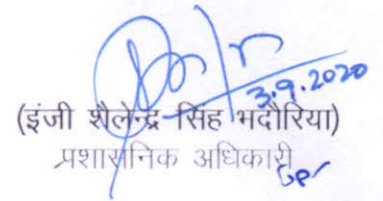 3.9.2020
(इंजी शैलेन्द्र सिंह भदौरिया)
प्रशासनिक अधिकारी